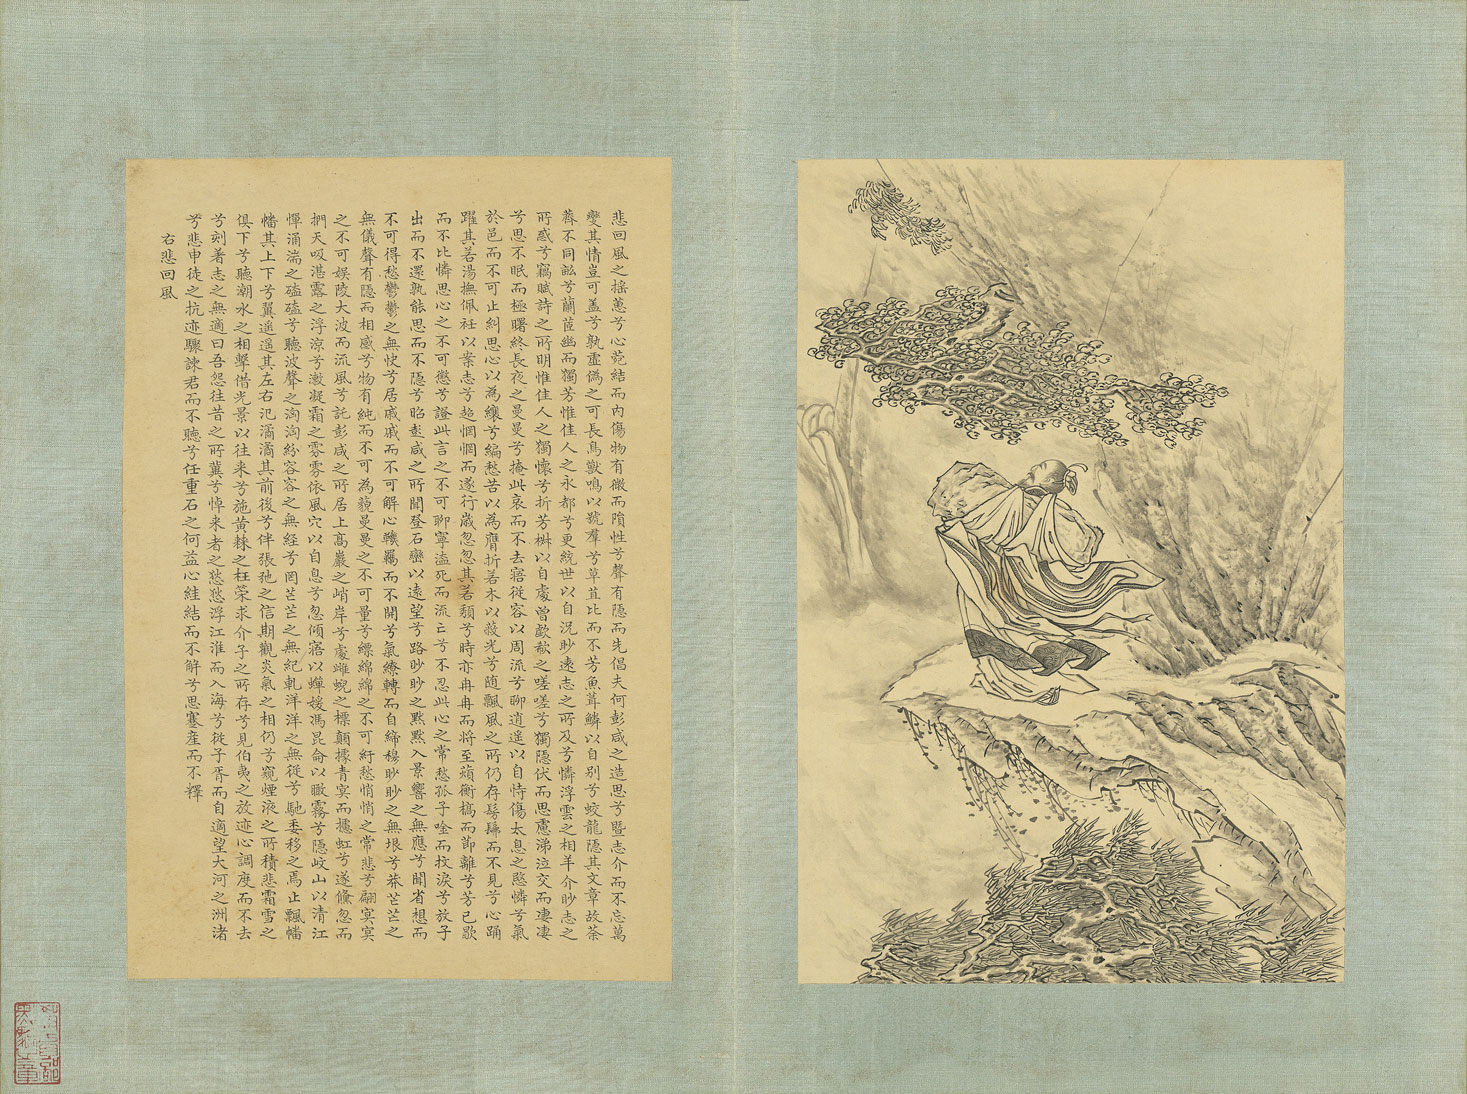 悲回風之搖蕙兮心寃結而内傷物有微而隕性兮聲有隱而先倡夫何彭咸之造思兮曁志介而不忘萬
變其情豈可盖兮孰虛偽之可長鳥獸鳴以號羣兮草苴比而不芳魚葺鱗以自别兮蛟龍隱其文章故荼
薺不同畝兮蘭茝幽而獨芳惟佳人之永都兮更統世以自況眇遠志之所及兮憐浮雲之相羊介眇志之
所惑兮竊賦詩之所明惟佳人之獨懷兮折芳椒以自處曾歔欷之嗟嗟兮獨隱伏而思慮涕泣交而凄凄
兮思不眠而極曙終長夜之曼曼兮掩此哀而不去寤從容以周流兮聊逍遙以自恃傷太息之愍憐兮氣
於邑而不可止糾思心以為纕兮編愁苦以為膺折若木以蔽光兮隨飄風之所仍存髣髴而不見兮心踊
躍其若湯撫佩衽以案志兮超惘惘而遂行歲忽忽其若頹兮時亦冉冉而將至薠衡槁而節離兮芳已歇
而不比憐思心之不可懲兮證此言之不可聊寧溘死而流亡兮不忍此心之常愁孤子唫而抆淚兮放子
出而不還孰能思而不隱兮昭彭咸之所聞登石巒以遠望兮路眇眇之默默入景響之無應兮聞省想而
不可得愁鬱鬱之無快兮居戚戚而不可解心鞿羈而不開兮氣繚轉而自締穆眇眇之無垠兮莽芒芒之
無儀聲有隱而相感兮物有純而不可為藐曼曼之不可量兮縹綿綿之不可紆愁悄悄之常悲兮翩冥冥
之不可娛陵大波而流風兮託彭咸之所居上高巖之峭岸兮處雌蜺之標顛據青冥而攄虹兮遂儵忽而
捫天吸湛露之浮涼兮漱凝霜之雰雰依風穴以自息兮忽傾寤以嬋媛馮昆侖以瞰霧兮隱岐山以清江
憚涌湍之礚礚兮聽波聲之洶洶紛容容之無經兮罔芒芒之無紀軋洋洋之無從兮馳委移之焉止飄幡
幡其上下兮翼遙遙其左右氾潏潏其前後兮伴張弛之信期觀炎氣之相仍兮窺煙液之所積悲霜雪之
俱下兮聽潮水之相擊借光景以往來兮施黃棘之枉策求介子之所存兮見伯夷之放迹心調度而不去
兮刻著志之無適曰吾怨往昔之所冀兮悼來者之悐悐浮江淮而入海兮從子胥而自適望大河之洲渚
兮悲申徒之抗迹驟諫君而不聽兮任重石之何益心絓結而不解兮思蹇産而不釋
右悲回風